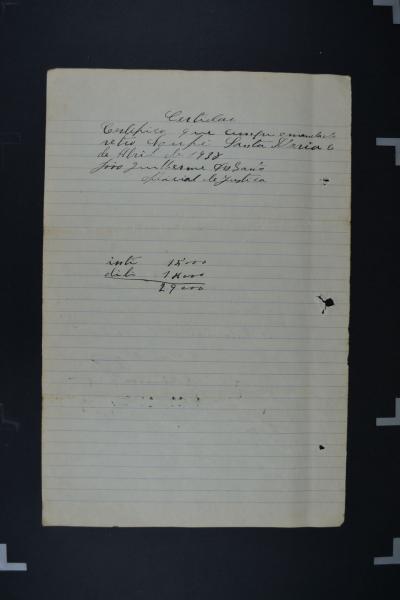 Certidão
Certifico que cumpri o mandado
retro Santa Maria 6
de Abril de 1938
João Guilherme
oficial de Justica
inti 15000
dilt 14000
29000